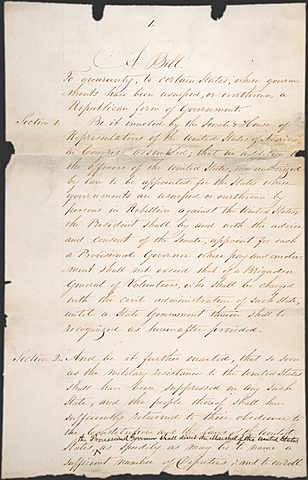 1.
A Bill
To guaranty, to certain States, whose govern
ments have been usurped, or overthrown, a
Republican form of Government.
Section 1. Be it enacted by the Senate & House of
Representatives of the United States of America
in Congress assembled, that in
the officers of the United States, authorized
by law to be appointed for the States where
governments are usurped or overthrown by
persons in Rebellion against the United States,
the President shall by and with the advice
and consent of the Senate, appoint for each
a Provisional Governor whose pay and emolu
ment shall not exceed that of a Brigadier
General of Volunteers, who shall be charged
with the civil administration of such state,
until a State Government therein shall be
recognized as hereinafter provided.
Section 2. And be it further enacted, that so soon
as the military resistance to the United States
shall have been suppressed in any such
State, and the people thereof shall have
sufficiently returned to their obedience to
the Constitution and the laws of the United
the Provisional Governor shall direct the Marshal of the United States
States, as speedily as may be to name a
sufficient number of Deputies, and to enroll